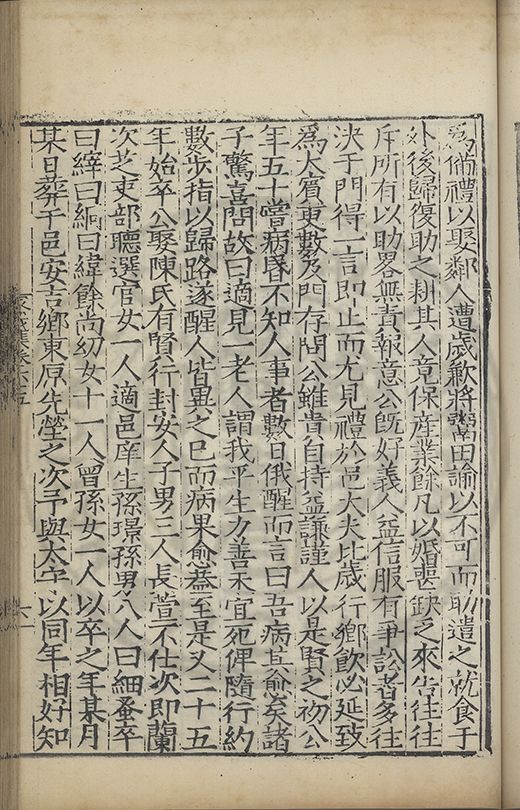 為備禮以娶鄰人遭歲歉將鬻田諭以不可而助遣之就食于
外後歸復助之耕其人竟保產業餘凡以婚喪缺乏來告往往
斥所有以助畧無責報意公旣好義人益信服有爭訟者多往
決于門得一言即止而尤見禮於邑大夫比歲行鄉飲必延致
為大賓更數及門存問公雖貴自持益謙謹人以是賢之初公
年五十嘗病昏不知人事者數日俄醒而言曰吾病其愈矣諸
子驚喜問故曰適見一老人謂我平生力善未宜死俾隨行約
數步指以歸路遂醒人皆異之已而病果愈蓋至是又二十五
年始卒公娶陳氏有賢行封安人子男三人長萱不仕次即蘭
次芝吏部聽選官女一人適邑庠生孫璟孫男八人曰細蚤卒
曰繹曰絅曰緯餘尚幼女十一人曾孫女一人以卒之年某月
某日葬于邑安吉鄉東原先塋之次予與太守以同年相好知